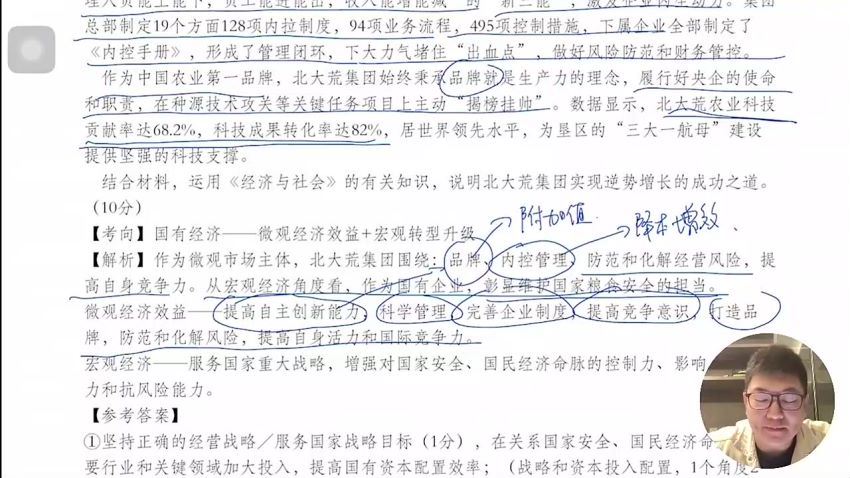 理人员能上能下，员工能进能出，收入能增能减”的“新三能”，激发企业内生动力。集团
总部制定19个方面128项内控制度，94项业务流程，495项控制措施，下属企业全部制定了
《内控手册》，形成了管理闭环，下大力气堵住“出血点”，做好风险防范和财务管控。
作为中国农业第一品牌，北大荒集团始终秉承品牌就是生产力的理念，履行好央企的使命
和职责，在种源技术攻关等关键任务项目上主动“揭榜挂帅”。数据显示，北大荒农业科技
贡献率达68.2%，科技成果转化率达82%，居世界领先水平，为垦区的“三大一航母”建设
提供坚强的科技支撑。
结合材料，运用《经济与社会》的有关知识，说明北大荒集团实现逆势增长的成功之道。
（10分）
附加值
降本增效
【考向】国有经济——微观经济效益+宏观转型升级
【解析】作为微观市场主体，北大荒集团围绕：品牌、内控管理、防范和化解经营风险，提
高自身竞争力。从宏观经济角度看，作为国有企业，彰显维护国家粮食安全的担当。
微观经济效益——提高自主创新能力，科学管理，完善企业制度，提高竞争意识，打造品
牌，防范和化解风险，提高自身活力和国际竞争力。
宏观经济——服务国家重大战略，增强对国家安全、国民经济命脉的控制力、影响
力和抗风险能力。
【参考答案】
①坚持正确的经营战略／服务国家战略目标（1分），在关系国家安全、国民经济命
要行业和关键领域加大投入，提高国有资本配置效率；（战略和资本投入配置，1个角度2